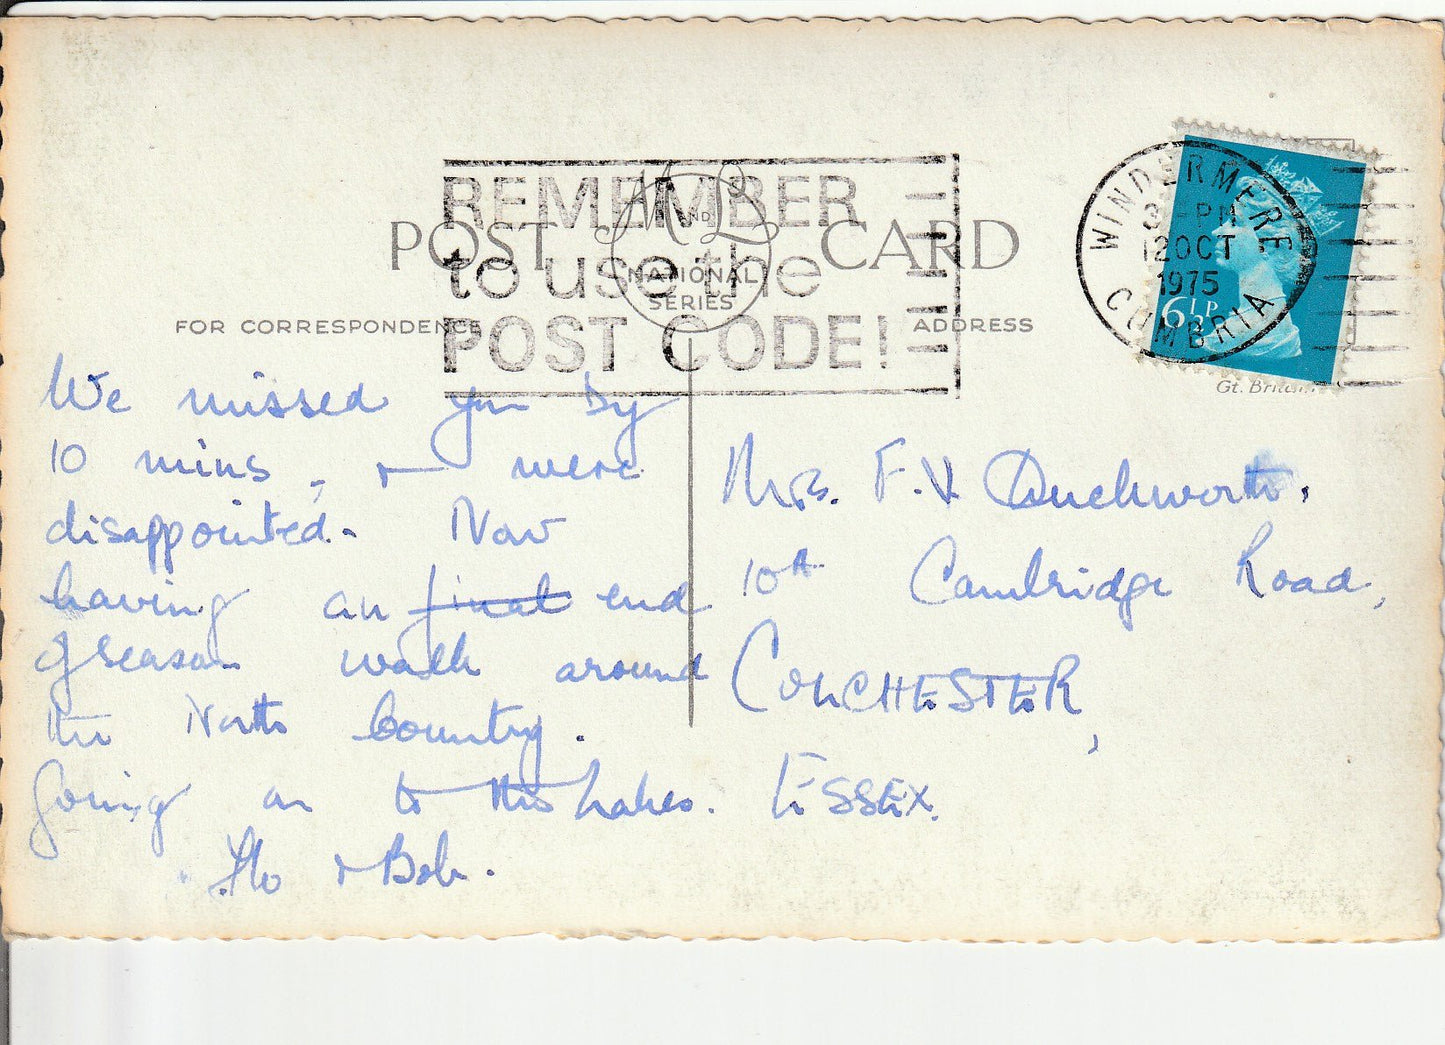 REMEMBER
to use the
POST CODE!
POST CARD
M & L
ND
NATIONAL
SERIES
FOR CORRESPONDENCE
ADDRESS
WINDERMERE
3 - PM
12 OCT
1975
CUMBRIA
6½P
Gt. Britain
We missed you by
10 mins, & were
disappointed. Now
having an final end
of season walk around
the North Country.
Going on to the Lakes.
Flo & Bob.
Mrs. F. V. Duckworth,
10A Cambridge Road,
COLCHESTER,
ESSEX.